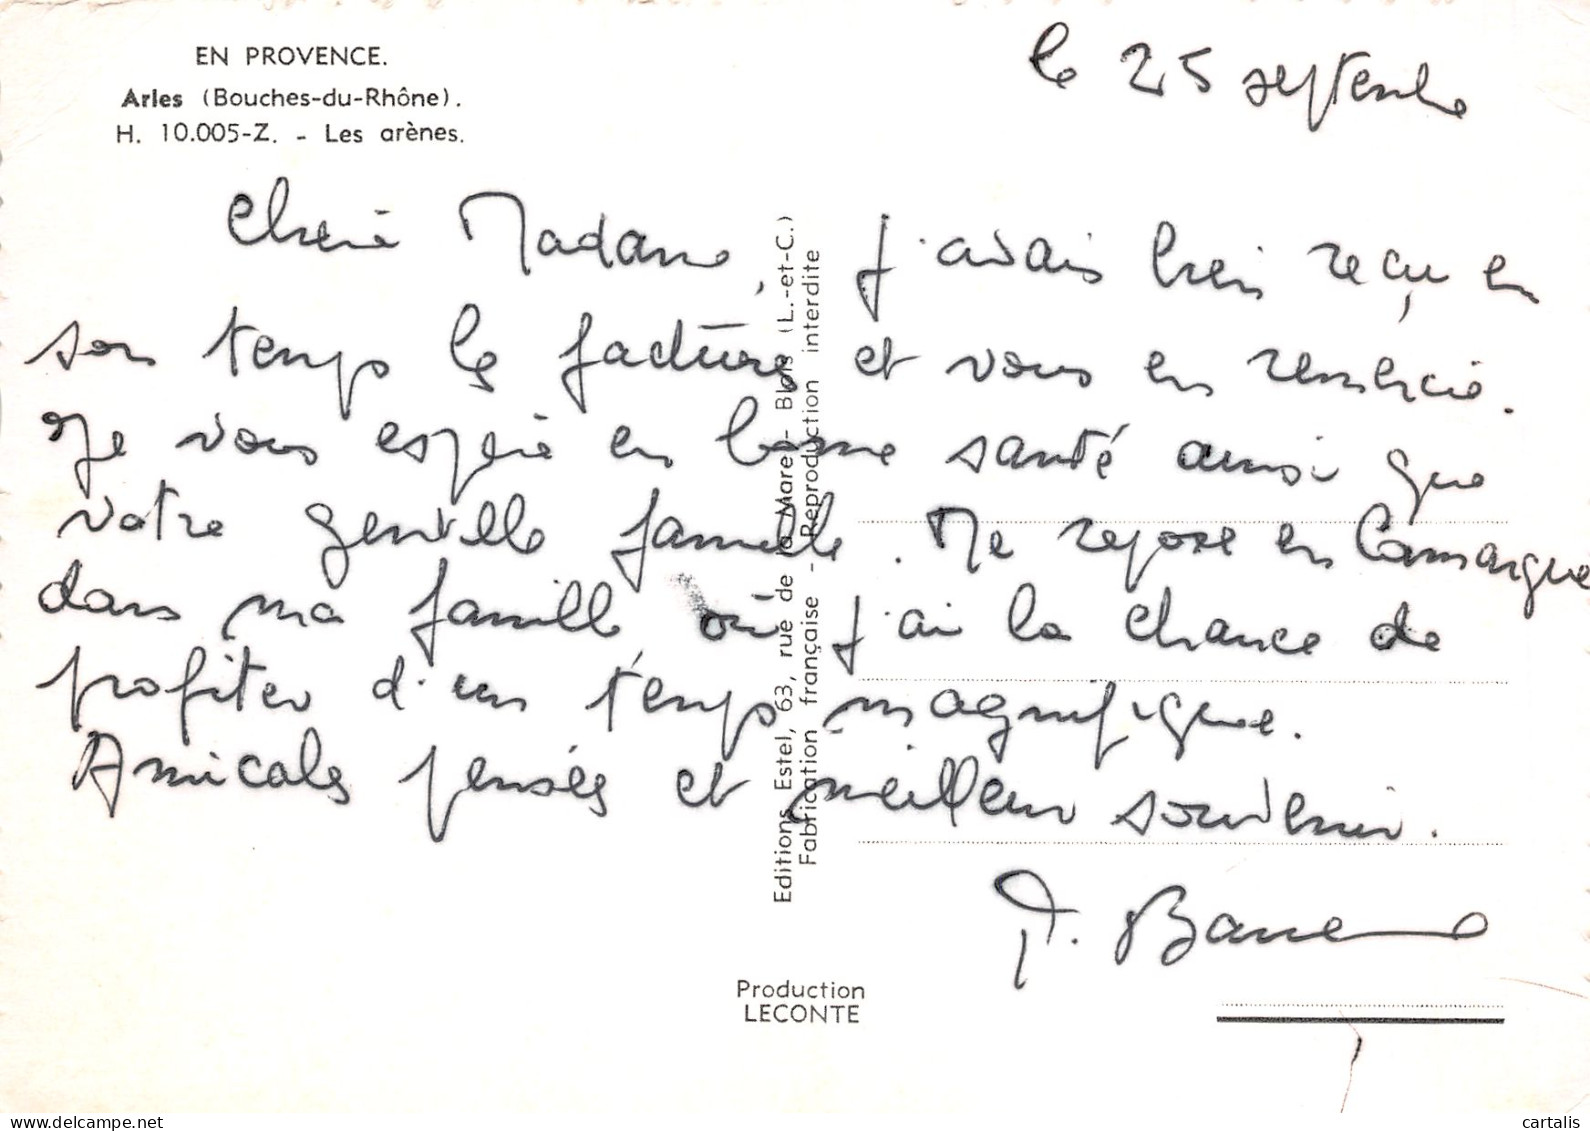 EN PROVENCE.
Arles (Bouches-du-Rhône).
H. 10.005-Z. - Les arènes.
le 25 septembre
Chère Madame, J'avais bien reçu en
son temps la facture et vous en remercie.
Je vous espère en bonne santé ainsi que
votre gentille famille. Me repose en Camargue
dans ma famille où j'ai la chance de
profiter d'un temps magnifique.
Amicales pensées et meilleur souvenir.
Editions Estel, 63, rue de la Mare - Blois (L.-et-C.)
Fabrication française - Reproduction interdite
Production
LECONTE
delcampe.net
cartalis